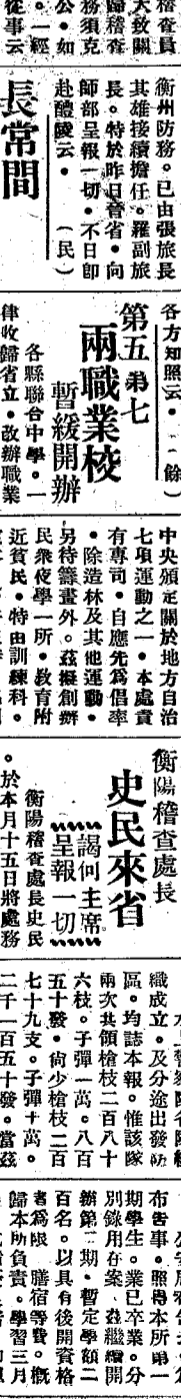 稽查員
大致關
歸稽查
務須克
公。如
。一經
從事云
衡州防務。已由張旅長
其雄接續擔任。羅副旅
長。特於昨日晉省。向
師部呈報一切。不日即
赴醴陵云。（民）
長常間
各方知照云。（餘）
第五第七
兩職業校
暫緩開辦
各縣聯合中學。一
律收歸省立。改辦職業
中央頒定關於地方自治
七項運動之一。本處責
有專司。自應先為倡率
。除造林及其他運動。
另待籌畫外。茲擬創辦
民衆夜學一所。教育附
近貧民。特由訓練科。
衡陽稽查處長
史民來省
謁何主席
呈報一切
衡陽稽查處長史民
。於本月十五日將處務
織成立。及分途出發防
區。均誌本報。惟該隊
兩次共領槍枝二百八十
六枝。子彈一萬。八百
五十發。尙少槍枝二百
七十九支。子彈十萬。
二千一百五十發。當茲
布告事。照得本所第一
期學生。業已卒業。分
別錄用在案。茲繼續開
辦第二期。暫定學額二
百名。以具有後開資格
者為限。膳宿等費。概
歸本所負責。學習三月